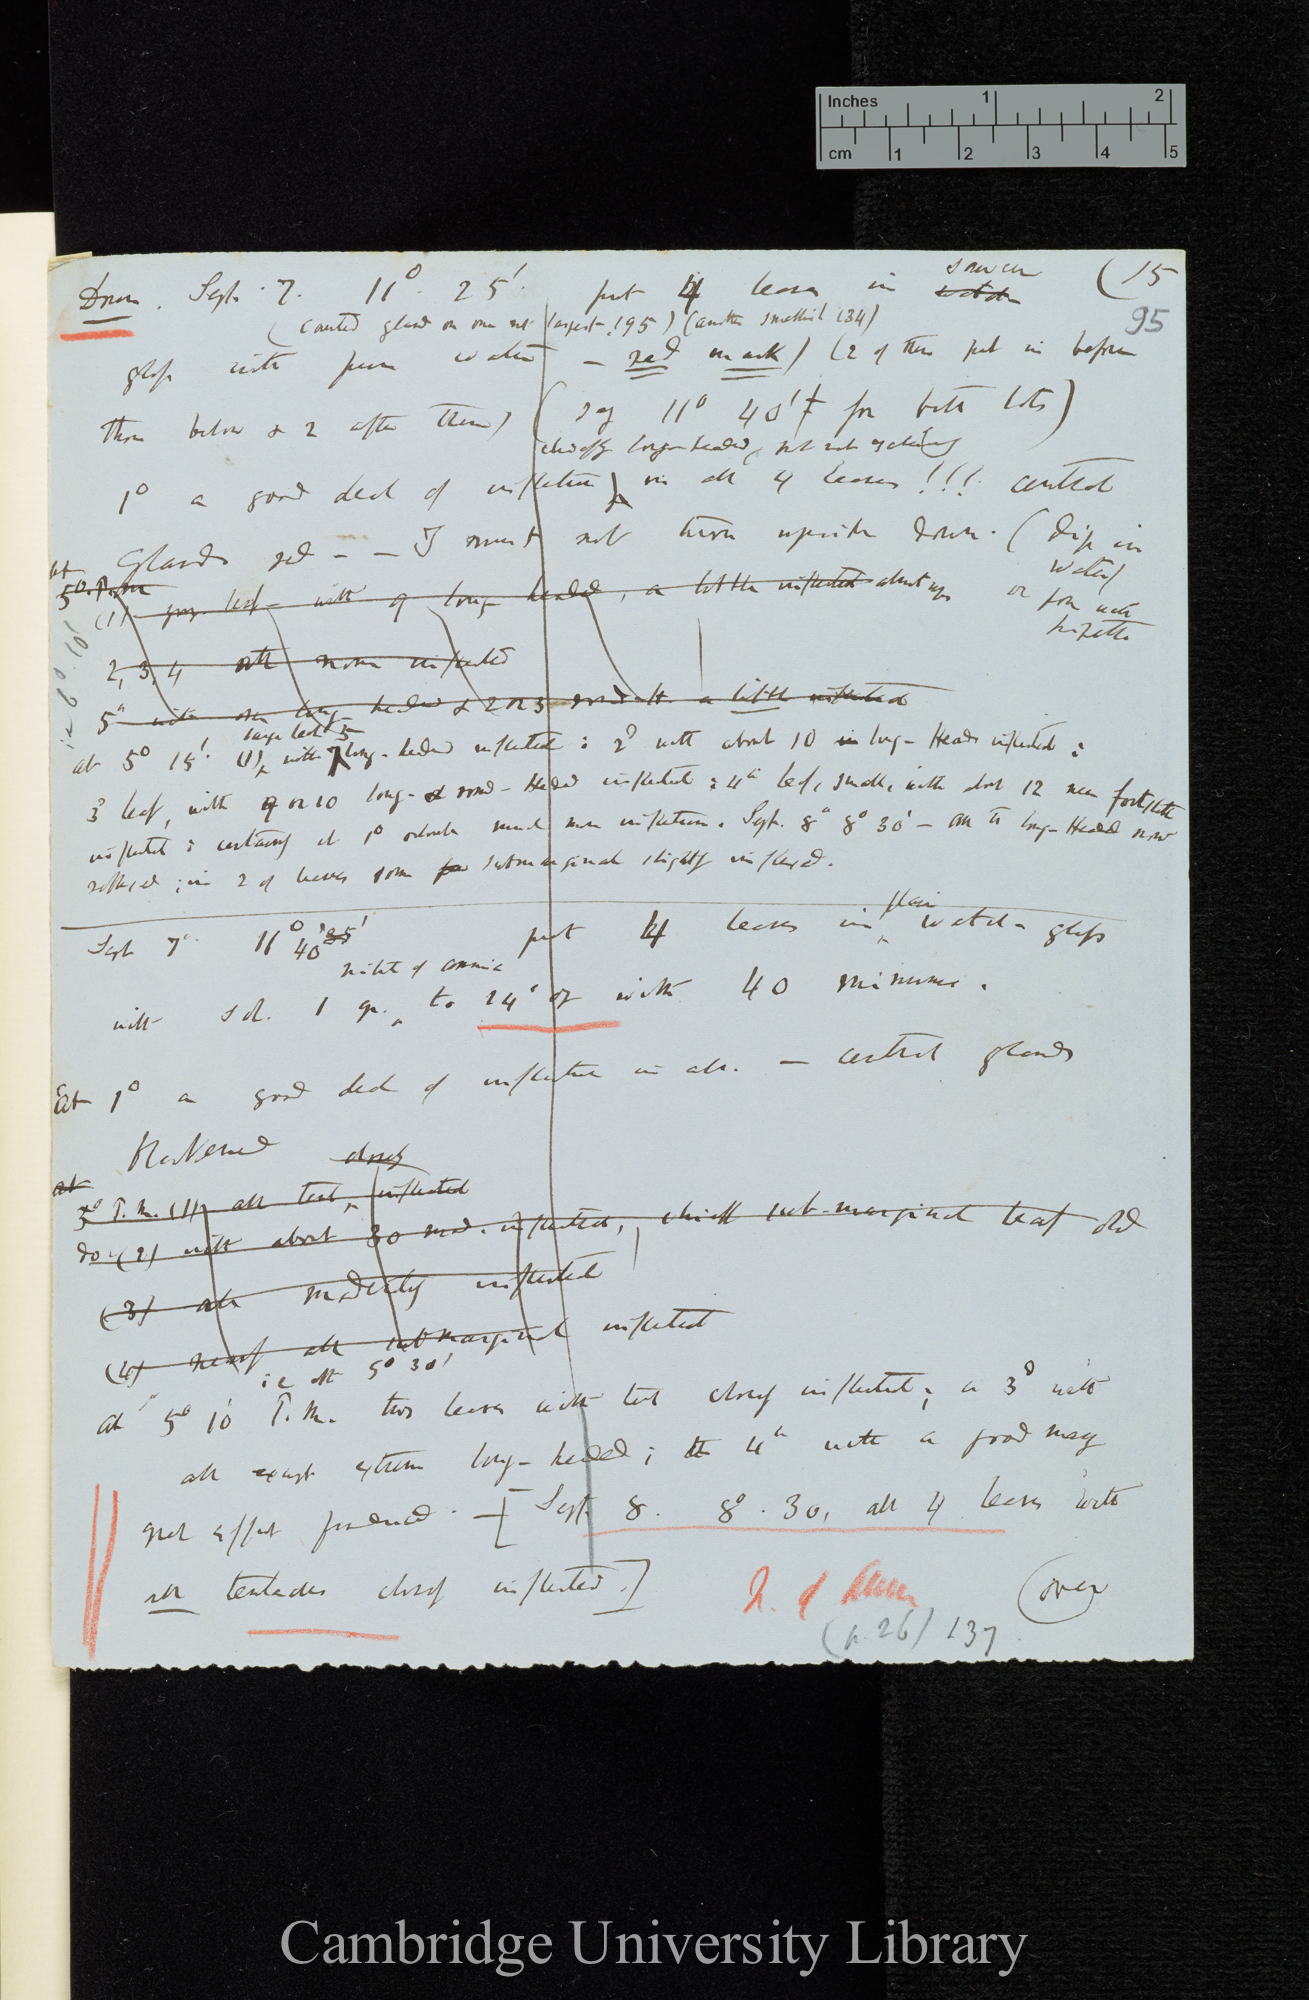 Inches 1 2
cm 1 2 3 4 5
(15
95
Dros. Sept. 7. 11° 25' put 4 leaves in saucer watch
(counted glands on one not largest 195) (another smallest 134)
glass with pure water — red mark) (2 of them put in before
those below & 2 after them) (say 11° 40' for both lots)
chiefly long-headed, not
1° a good deal of inflection in all 4 leaves!!! central
Glands red — — I must not turn upside down. (dip in
water)
or pour with
pipette
at
(1) leaf with 9 long headed, a little inflected
2, 3, 4 none inflected
5th with long headed & 2 or 3 a little inflected
i.e 6° 10'
large leaf 5
at 5° 15'. (1) with long-headed inflected: 2d with about 10 long-Heads inflected:
3d leaf, with 9 or 10 long- & round-Headed inflected: 4th leaf, small, with about 12
inflected: certainly at 1° o'clock much more inflection. Sept. 8th 8° 30' — all the long-Headed now
; in 2 of leaves some submarginal slightly inflexed.
Sept 7th. 11° 40' 25' put 4 leaves in plain watch-glass
nitrate of ammonia
with sol. 1 gr. to 24 oz with 40 minims.
At 1° a good deal of inflection in all. — central glands
blackened
at closely
5° P.M. (1) all tent. inflected
do (2) with about 30 mod. inflected, chiefly sub-marginal leaf old
(3) all moderately inflected
(4) nearly all submarginal inflected
i.e. at 5° 30'
at 5° 10' P.M. two leaves with tent closely inflected; a 3d with
all except extreme long-headed; the 4th with a good many
great effect produced. — [Sept 8. 8°. 30, all 4 leaves with
all tentacles closely inflected.]
N. of Amm
(over
(p. 26) 137
Cambridge University Library